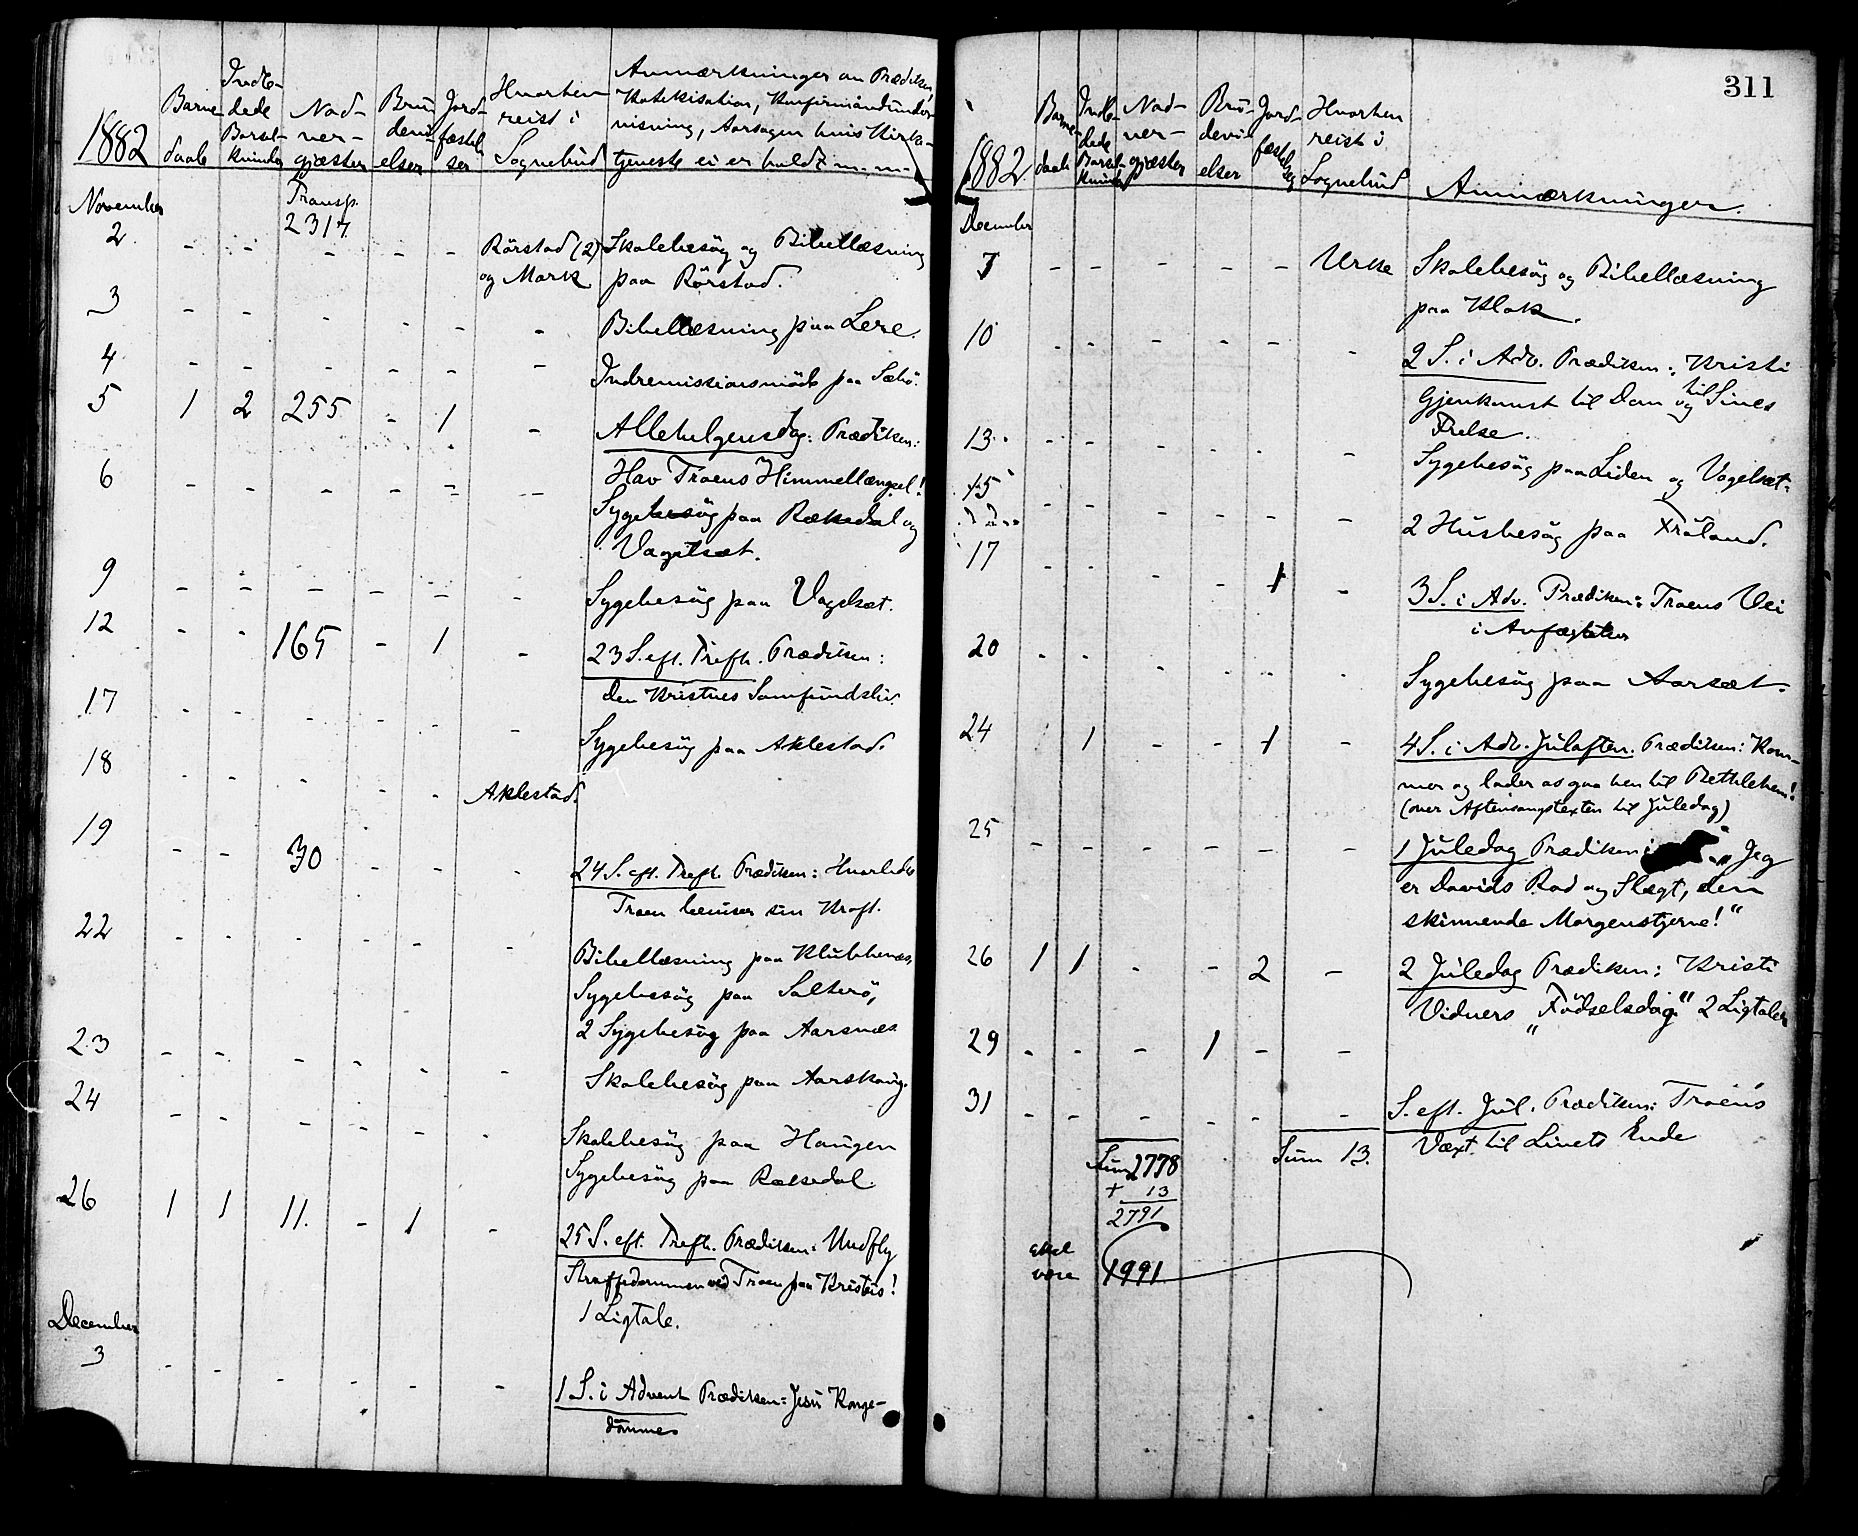 1882
Barne-
daab
Indle-
dede
Barsel-
kvinder
Nad-
ver-
gjæster
Bru-
devi-
elser
Jord-
fæstel-
ser
Hvorhen
reist i
Sognebud
Anmærkninger om Prædiken,
Katekisation, Konfirmandunder-
visning, Aarsagen hvis Kirke-
tjeneste ei er holdt m. m.
November
Transp.
2317.
2 - - - - - Rörstad (2) Skolebesög og Bibellæsning
og Mork paa Rörstad.
3 - - - - - - Bibellæsning paa Lere.
4 - - - - - - Indremissionsmöde paa Sæbö.
5 1 2 255 - 1 - Allehelgensdag: Prædiken:
Hav Troens Himmellængsel!
6 - - - - - - Sygebesög paa Rækedal og
Vagelsæt.
9 - - - - - - Sygebesög paa Vagelsæt.
12 - - 165 - 1 - 23 S. eft. Trefh. Prædiken:
den Kristnes Samfundsliv.
17 - - - - - - Sygebesög paa Aklestad.
18 - - - - - Aklestad.
19 - - 30 - - - 24 S. eft. Trefh. Prædiken: Hvorledes
Troen beviser sin Kraft.
22 - - - - - - Bibellæsning paa Klubbenæs,
Sygebesög paa Salterö,
2 Sygebesög paa Aarsnæs
23 - - - - - - Skolebesög paa Aarskoug.
24 - - - - - - Skolebesög paa Haugen
Sygebesög paa Rækedal.
26 1 1 11. - 1 - 25 S. eft. Trefh. Prædiken: Undfly
Straffedommen ved Troen paa Kristus!
1 Ligtale.
December
3 - - - - - - 1 S. i Advent Prædiken: Jesu Konge-
dömme
311
1882
Barne-
daab
Indle-
dede
Barsel-
kvinder
Nad-
ver-
gjæster
Bru-
devi-
elser
Jord-
fæstelser
Hvorhen
reist i
Sognebud
Anmærkninger.
December
7 - - - - - Urke Skolebesög og Bibellæsning
paa Klok.
10 - - - - - - 2 S. i Adv. Prædiken: Kristi
Gjenkomst til Dom og til Sines
Frelse.
13 - - - - - - Sygebesög paa Liden og Vagelsæt.
15 - - - - - - 2 Husbesög paa Fröland.
17 - - - - 1 - 3 S. i Adv. Prædiken: Troens Vei
i Anfægtelser
20 - - - - - Sygebesög paa Aarsæt.
24 1 - - 1 - 4 S. i Adv. Juleaften. Prædiken: Kom-
mer og lader os gaa hen til Bethlehem!
(over Aftensangstexten til Juledag)
25 - - - - - - 1 Juledag Prædiken: „Jeg
er Davids Rod og Slægt, den
skinnende Morgenstjerne!“
26 1 1 - - 2 - 2 Juledag Prædiken: Kristi
Vidners „Födselsdag“ 2 Ligtaler
29 - - - 1 - -
31 - - - - - - S. eft. Jul. Prædiken: Troens
Væxt til Livets Ende
Sum 2778 Sum 13.
+ 13
2791
skal
være 1991